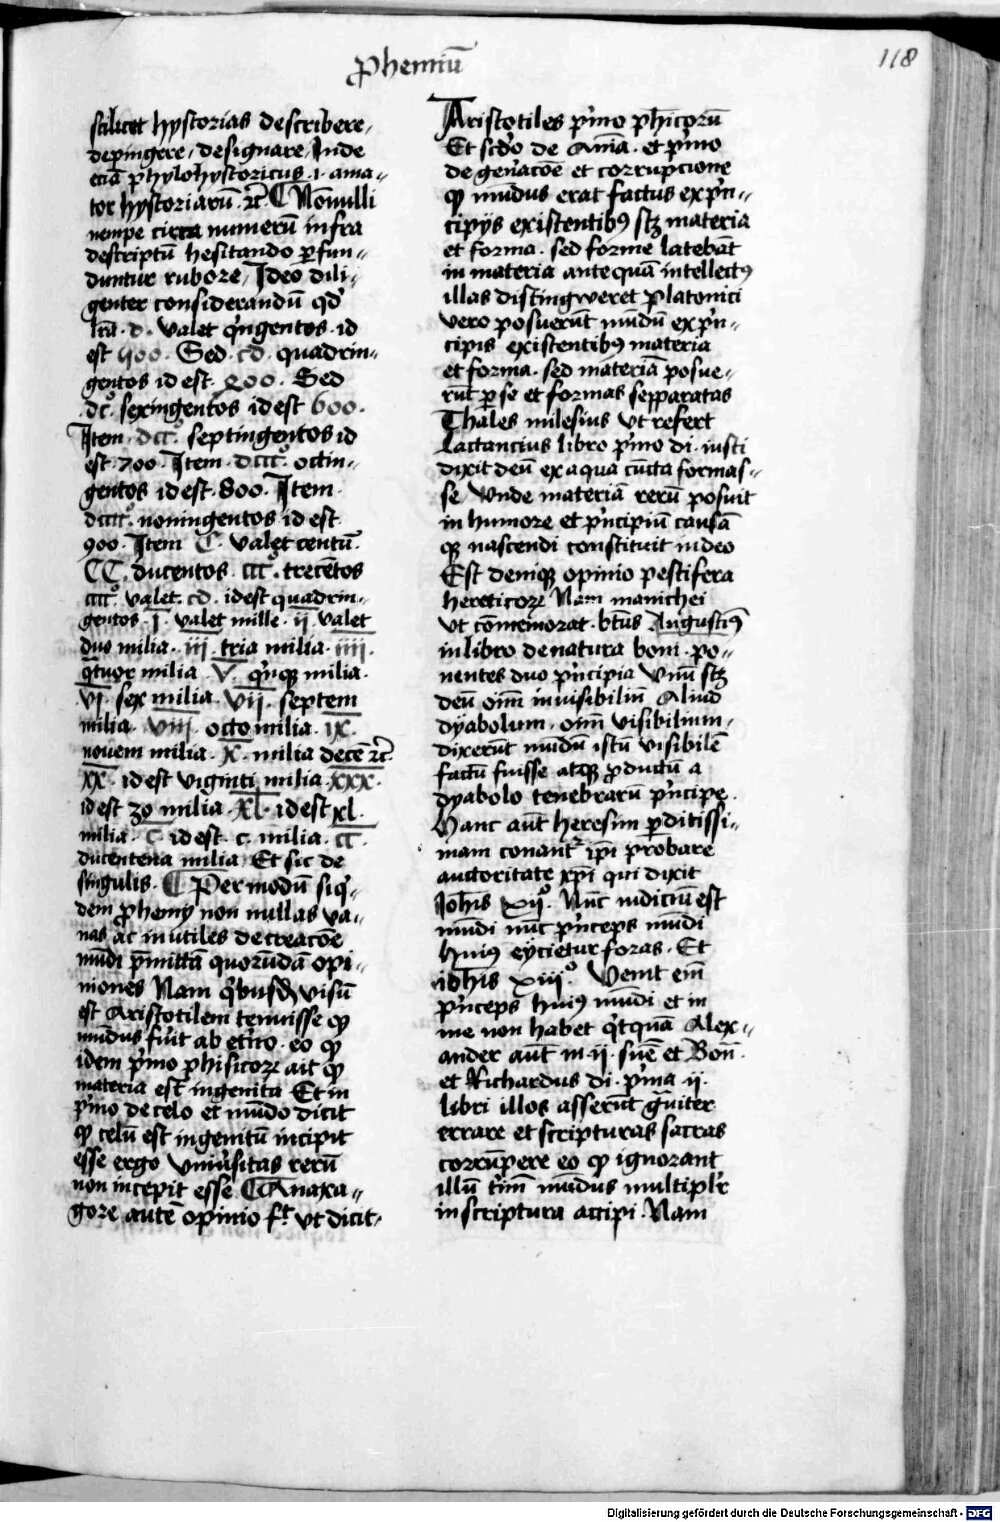 118
ꝓhemiū
scilicet hystorias describere,
depingere, designare, Inde
eciā phylohystoricus .i. ama-
tor hystoriarū. ⁊c̄ ¶ Nōnulli
nempe circa numerū infra
descriptū hesitando ꝑfun-
duntur rubore, Ideo dili-
genter considerandū qd̕
lrā .d. valet q̕ngentos .id
est 500. Sed .cd. quadrin-
gentos id est .400. Sed
.dc. sexingentos id est 600.
Item .dcc. septingentos id
est .700. Item .dccc. octin-
gentos id est .800. Item
dcccc. noningentos id est
900. Item C. valet centū.
CC. ducentos .ccc. trecētos
cccc. valet .cd. id est quadrin-
gentos. I̅. valet mille .i̅i̅. valet
duo milia. i̅i̅i̅. tria milia .i̅i̅i̅i̅.
q̄tuor milia .V̅. q̕nqꝫ milia.
V̅I̅. sex milia. V̅I̅I̅. septem
milia. V̅I̅I̅I̅. octo milia. I̅X̅.
novem milia. X̅. milia decē ⁊c̄.
X̅X̅. id est viginti milia. X̅X̅X̅.
id est 30 milia. X̅L̅. id est xl.
milia. c̅. id est .c. milia. c̅c̅.
ducentena milia. Et sic de
singulis. ¶ Per modū siq̕-
dem ꝓhemy non nullas va-
nas ac inutiles de creacōe
mūdi p̄mittā quorūdā opi-
niones Nam q̕busdā visū
est Aristotilem tenuisse qꝫ
mūdus fu̕it ab et̕no. eo qꝫ
idem p̕mo phisicoꝝ ait qꝫ
materia est ingenita Et in
p̕mo de celo et mūdo dicit
qꝫ celū est ingenitū incipit
esse ergo univ̕sitas rerū
non incepit esse ¶ Anaxa-
gore autē opinio f̕t ut dicit.
Aristotiles p̕mo ph̄icorū
Et scd̕o de Aniā. et p̕mo
de gen̕acōe et corrupcione
qꝫ mūdus erat factus ex p̕n-
cipijs existentibꝰ scꝫ materia
et forma. sed forme latebāt
in materia ante quā intellectꝰ
illas distingweret Platonici
vero posuerūt mūdū ex p̕n-
cipis existentibꝰ materia
et forma. sed materiā posue-
rūt ꝑ se et formas sepparatas
Thales milesius ut refert
Lactancius libro p̕mo di. insti
dixit deū ex aqua cūcta formas-
se. Unde materiā rerū posuit
in humore et p̕ncipiū causā
qꝫ nascendi constituit in deo
Est deniqꝫ opinio pestifera
hereticoꝝ Nam manichei
ut cōmemorat. btūs Augustinꝰ
in libro de natura boni. po-
nentes duo p̕ncipia Unū scꝫ
deū oīm invisibiliū Aliud
dyabolum. oīm visibilium.
dixerūt mūdū istū visibilē
factū fuisse atqꝫ ꝓductū a
dyabolo tenebrarū p̕ncipe.
Hanc aūt heresim ꝑditissi-
mam conantᷣ ip̄i probare
auctoritate xp̄i qui dixit
Joh̄is xijº. Nūc iudiciū est
mūdi nūc p̕nceps mūdi
huiꝰ eycietur foras. Et
ioh̄is xiiijº. Venit enī
p̕nceps huiꝰ mūdi et in
me non habet q̕cquā Alex-
ander aūt in .ij. suē et Bon̄.
et Richardus di. p̕ma .ij.
libri illos asserūt g̕viter
errare et scripturas sacras
corrūpere eo qꝫ ignorant
illū t̕m̄ mūdus multipl̕r
in scriptura accipi. Nam
Digitalisierung gefördert durch die Deutsche Forschungsgemeinschaft - DFG